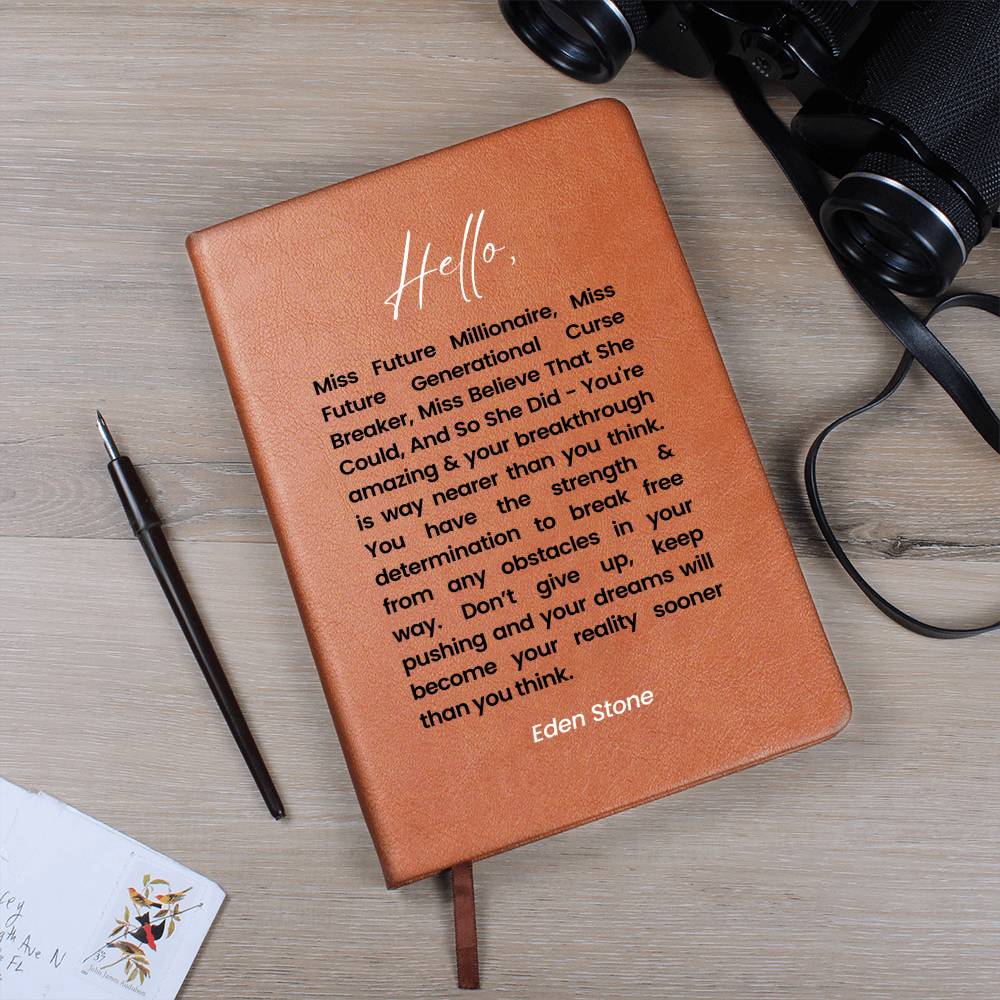 Hello,
Miss Future Millionaire, Miss
Future Generational Curse
Breaker, Miss Believe That She
Could, And So She Did - You're
amazing & your breakthrough
is way nearer than you think.
You have the strength &
determination to break free
from any obstacles in your
way. Don't give up, keep
pushing and your dreams will
become your reality sooner
than you think.
Eden Stone
Ave N
FL
37
John James Audubon